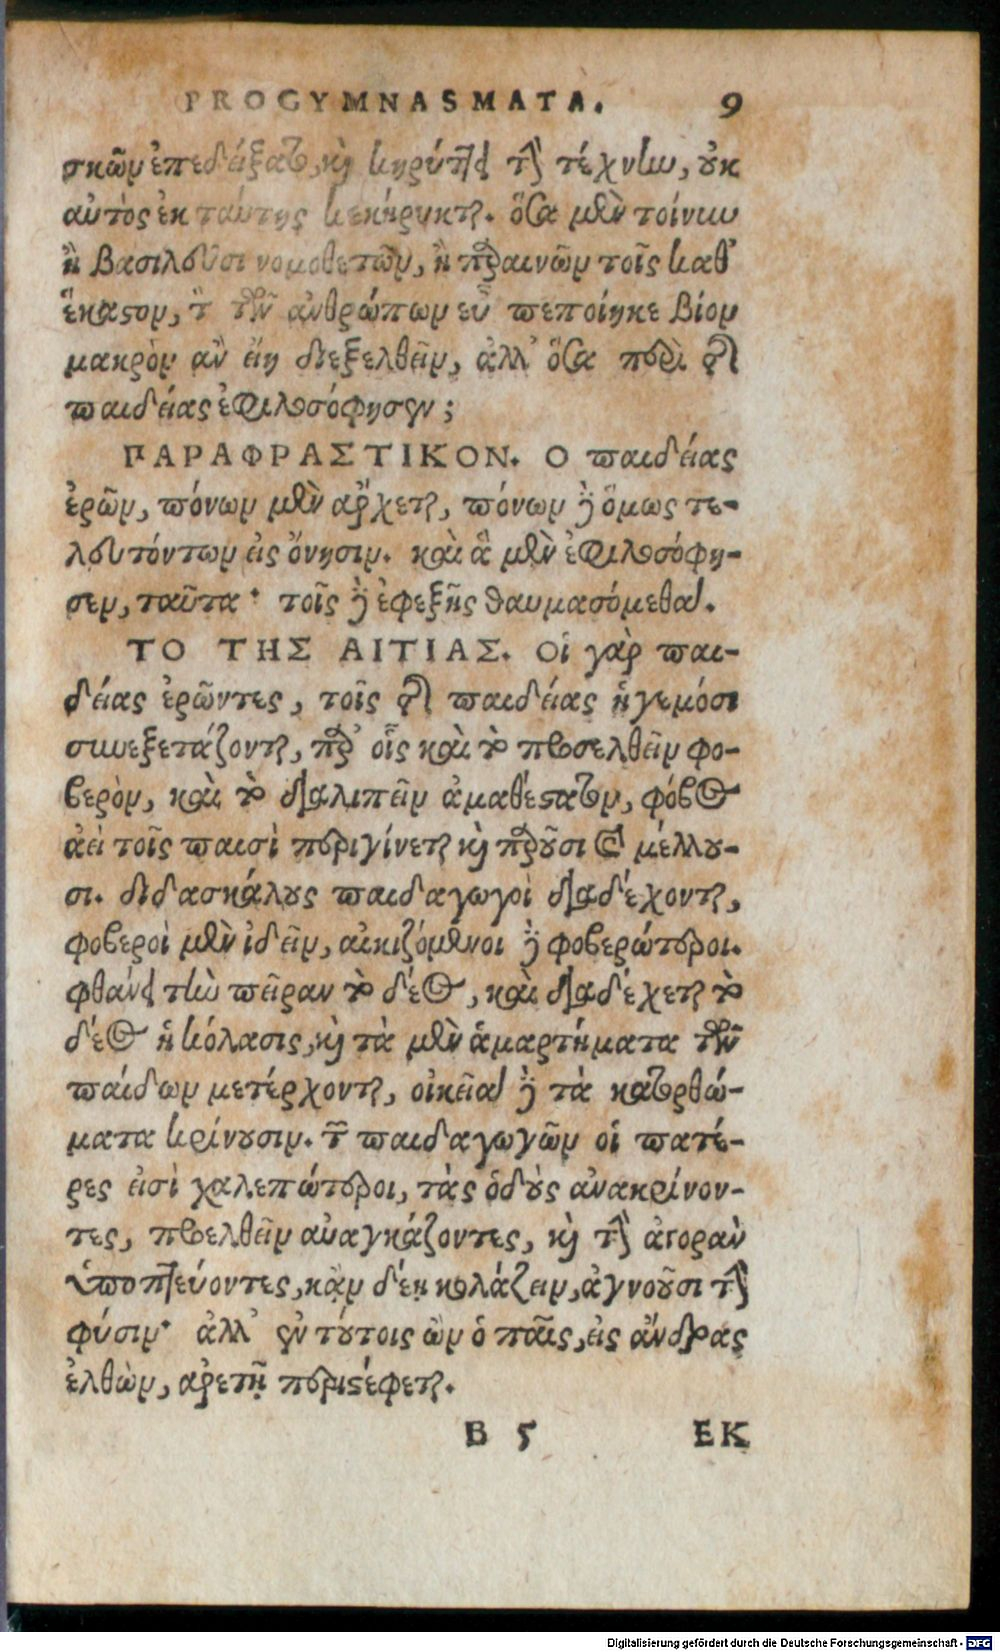 PROGYMNASMATA. 9
σκων ἐπεδείξατο, καὶ κηρύττει τὴν τέχνην, οὐκ
αὐτὸς ἐκ ταύτης κεκήρυκται. ὅσα μὲν τοίνυν
ἢ βασιλεῦσι νομοθετῶν, ἢ παραινῶν τοῖς καθ'
ἕκαστον, τὸν τῶν ἀνθρώπων εὖ πεποίηκε βίον
μακρὸν ἂν εἴη διεξελθεῖν, ἀλλ' ὅσα περὶ τῆς
παιδείας ἐφιλοσόφησεν;
ΠΑΡΑΦΡΑΣΤΙΚΟΝ. Ο παιδείας
ἐρῶν, πόνων μὲν ἄρχεται, πόνων δὲ ὅμως τε-
λευτόντων εἰς ὄνησιν. καὶ ἃ μὲν ἐφιλοσόφη-
σεν, ταῦτα· τοῖς δὲ ἐφεξῆς θαυμασόμεθα.
ΤΟ ΤΗΣ ΑΙΤΙΑΣ. Οἱ γὰρ παι-
δείας ἐρῶντες, τοῖς τῆς παιδείας ἡγεμόσι
συνεξετάζονται, παρ' οἷς καὶ τὸ προσελθεῖν φο-
βερὸν, καὶ τὸ διαλιπεῖν ἀμαθέστατον, φόβος
ἀεὶ τοῖς παισὶ περιγίνεται καὶ παροῦσι καὶ μέλλου-
σι. διδασκάλους παιδαγωγοὶ διαδέχονται,
φοβεροὶ μὲν ἰδεῖν, αἰκιζόμενοι δὲ φοβερώτεροι.
φθάνει τὴν πεῖραν τὸ δέος, καὶ διαδέχεται τὸ
δέος ἡ κόλασις, καὶ τὰ μὲν ἁμαρτήματα τῶν
παίδων μετέρχονται, οἰκεῖα δὲ τὰ κατορθώ-
ματα κρίνουσιν. τῶν παιδαγωγῶν οἱ πατέ-
ρες εἰσὶ χαλεπώτεροι, τὰς ὁδοὺς ἀνακρίνον-
τες, προελθεῖν ἀναγκάζοντες, καὶ τὴν ἀγορὰν
ὑποπτεύοντες, κἂν δέῃ κολάζειν, ἀγνοοῦσι τὴν
φύσιν· ἀλλ' ἐν τούτοις ὢν ὁ παῖς, εἰς ἄνδρας
ἐλθὼν, ἀρετῇ περιστέφεται.
B 5 ΕΚ
Digitalisierung gefördert durch die Deutsche Forschungsgemeinschaft - DFG